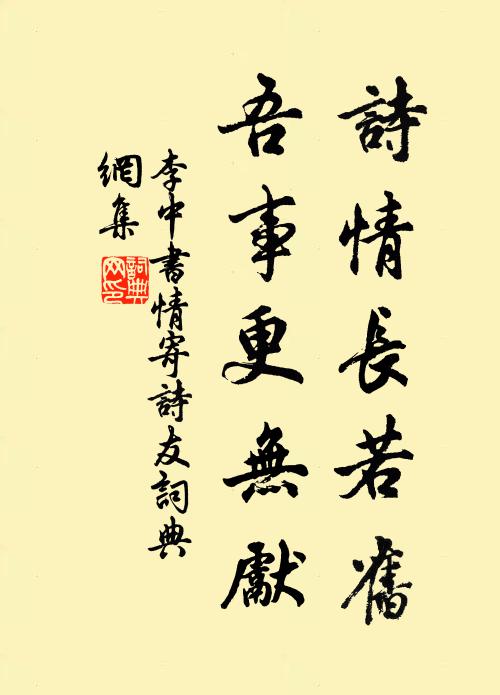 詩情長若舊
吾事更無獻
李中書情寄詩友詞典
網集
詞典
网印